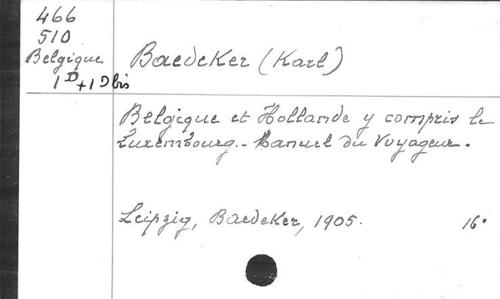 466
510
Belgique
1D+1Dbis
Baedeker (Karl)
Belgique et Hollande y compris le
Luxembourg. - Manuel du Voyageur.
Leipzig, Baedeker, 1905. 16°